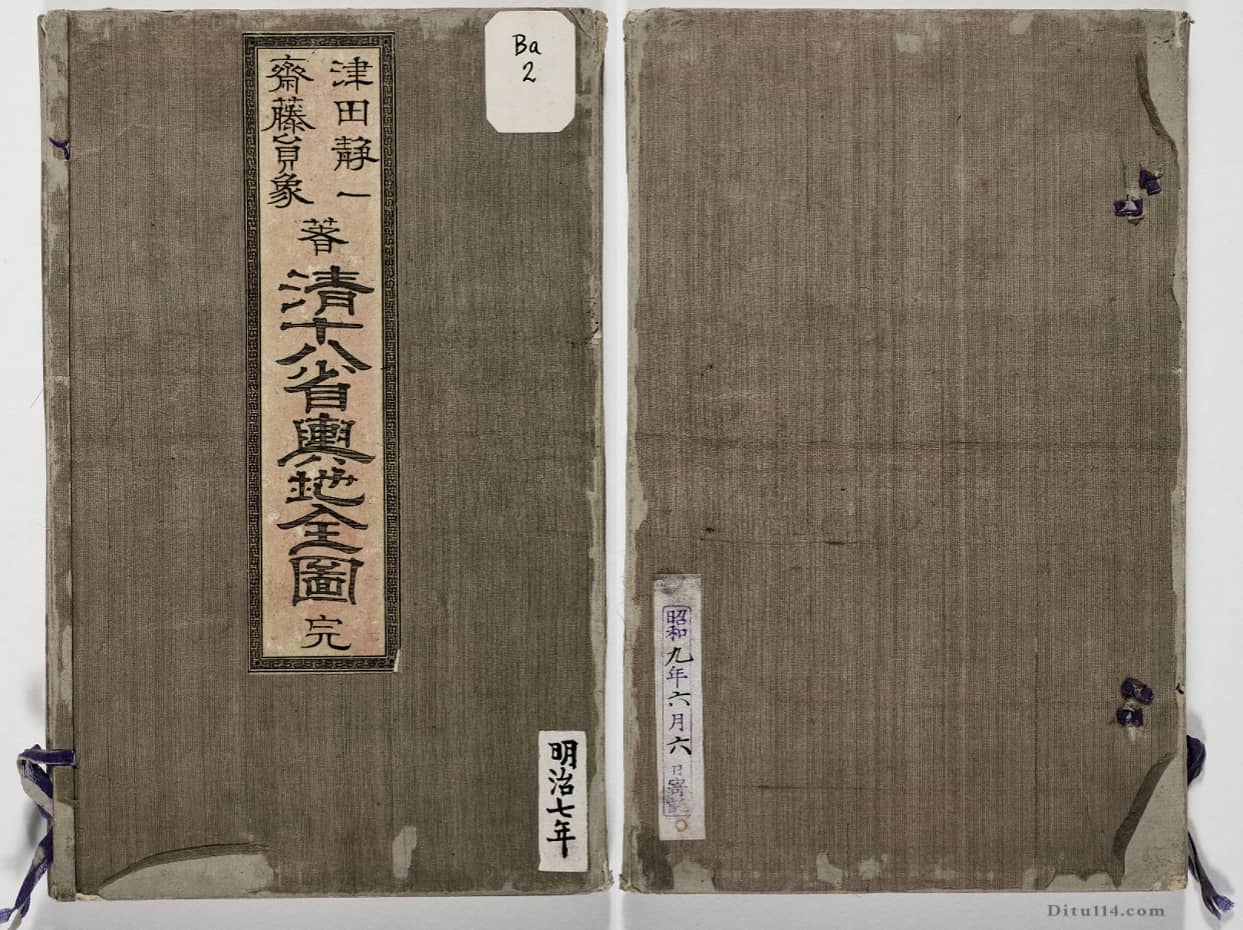 津田静一
齋藤象
著
清十八省輿地全圖
完
Ba
2
明治七年
昭和九年六月六日
Ditu114.com